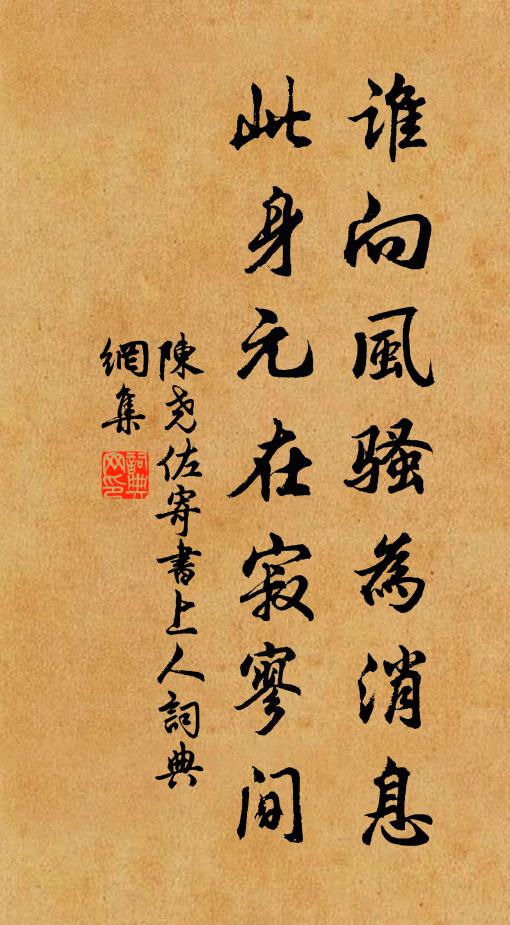 谁向風骚為消息
此身元在寂寥间
陳尧佐寄書上人詞典
網集
詞典網印